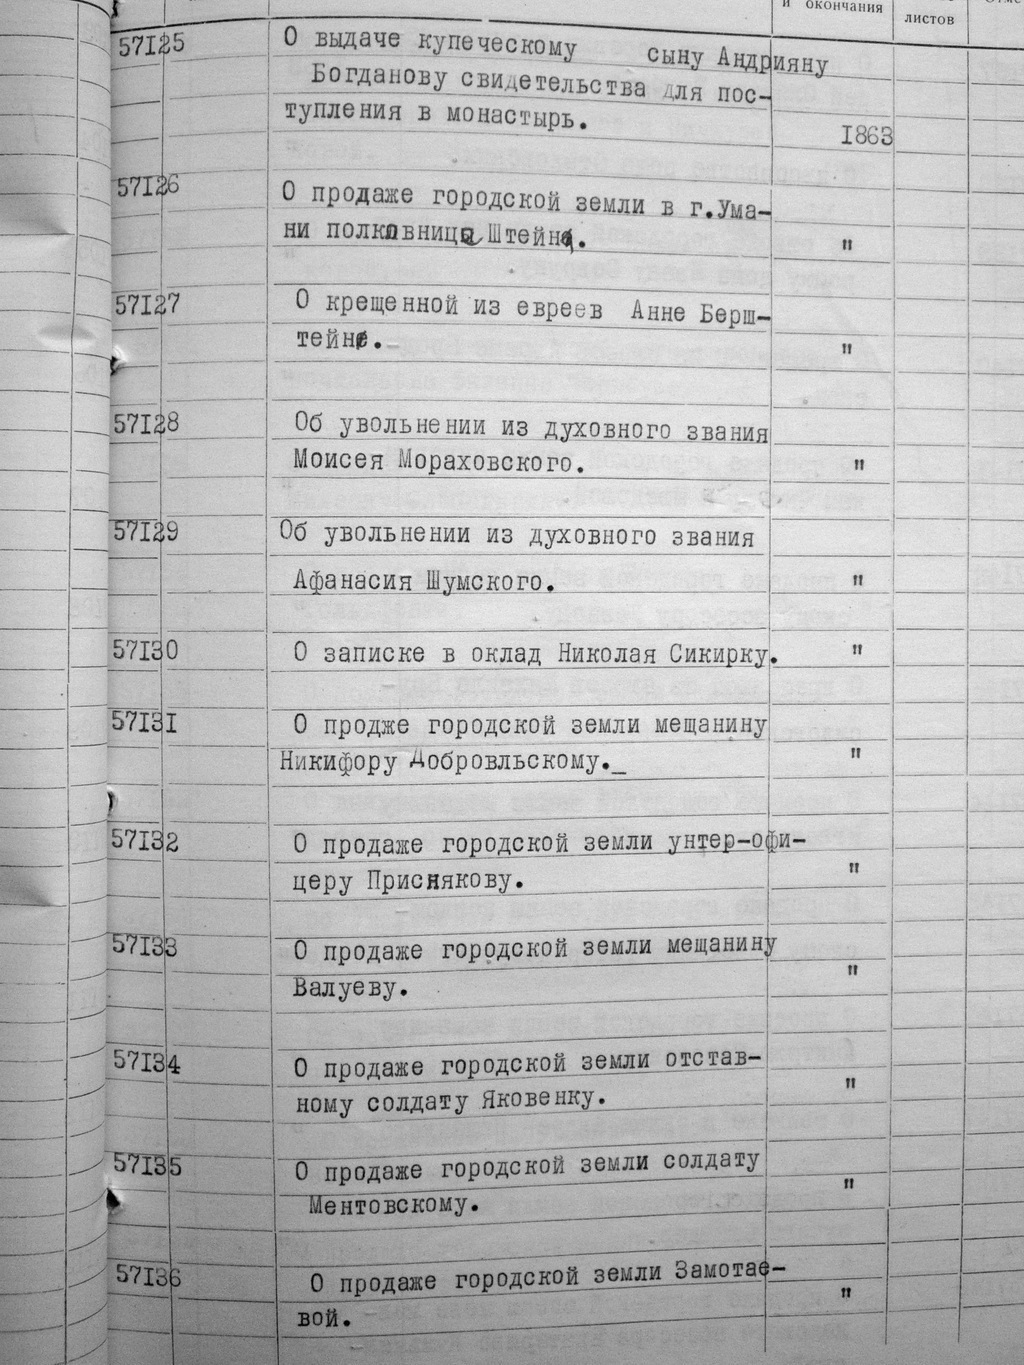 и окончания
листов
57125 О выдаче купеческому сыну Андрияну
Богданову свидетельства для пос-
тупления в монастырь.
1863
57126 О продаже городской земли в г.Ума-
ни полковнице Штейн. "
57127 О крещенной из евреев Анне Берш-
тейн. "
57128 Об увольнении из духовного звания
Моисея Мораховского. "
57129 Об увольнении из духовного звания
Афанасия Шумского. "
57130 О записке в оклад Николая Сикирку. "
57131 О продже городской земли мещанину
Никифору Добровльскому._ "
57132 О продаже городской земли унтер-офи-
церу Приснякову. "
57133 О продаже городской земли мещанину
Валуеву. "
57134 О продаже городской земли отстав-
ному солдату Яковенку. "
57135 О продаже городской земли солдату
Ментовскому. "
57136 О продаже городской земли Замотае-
вой. "